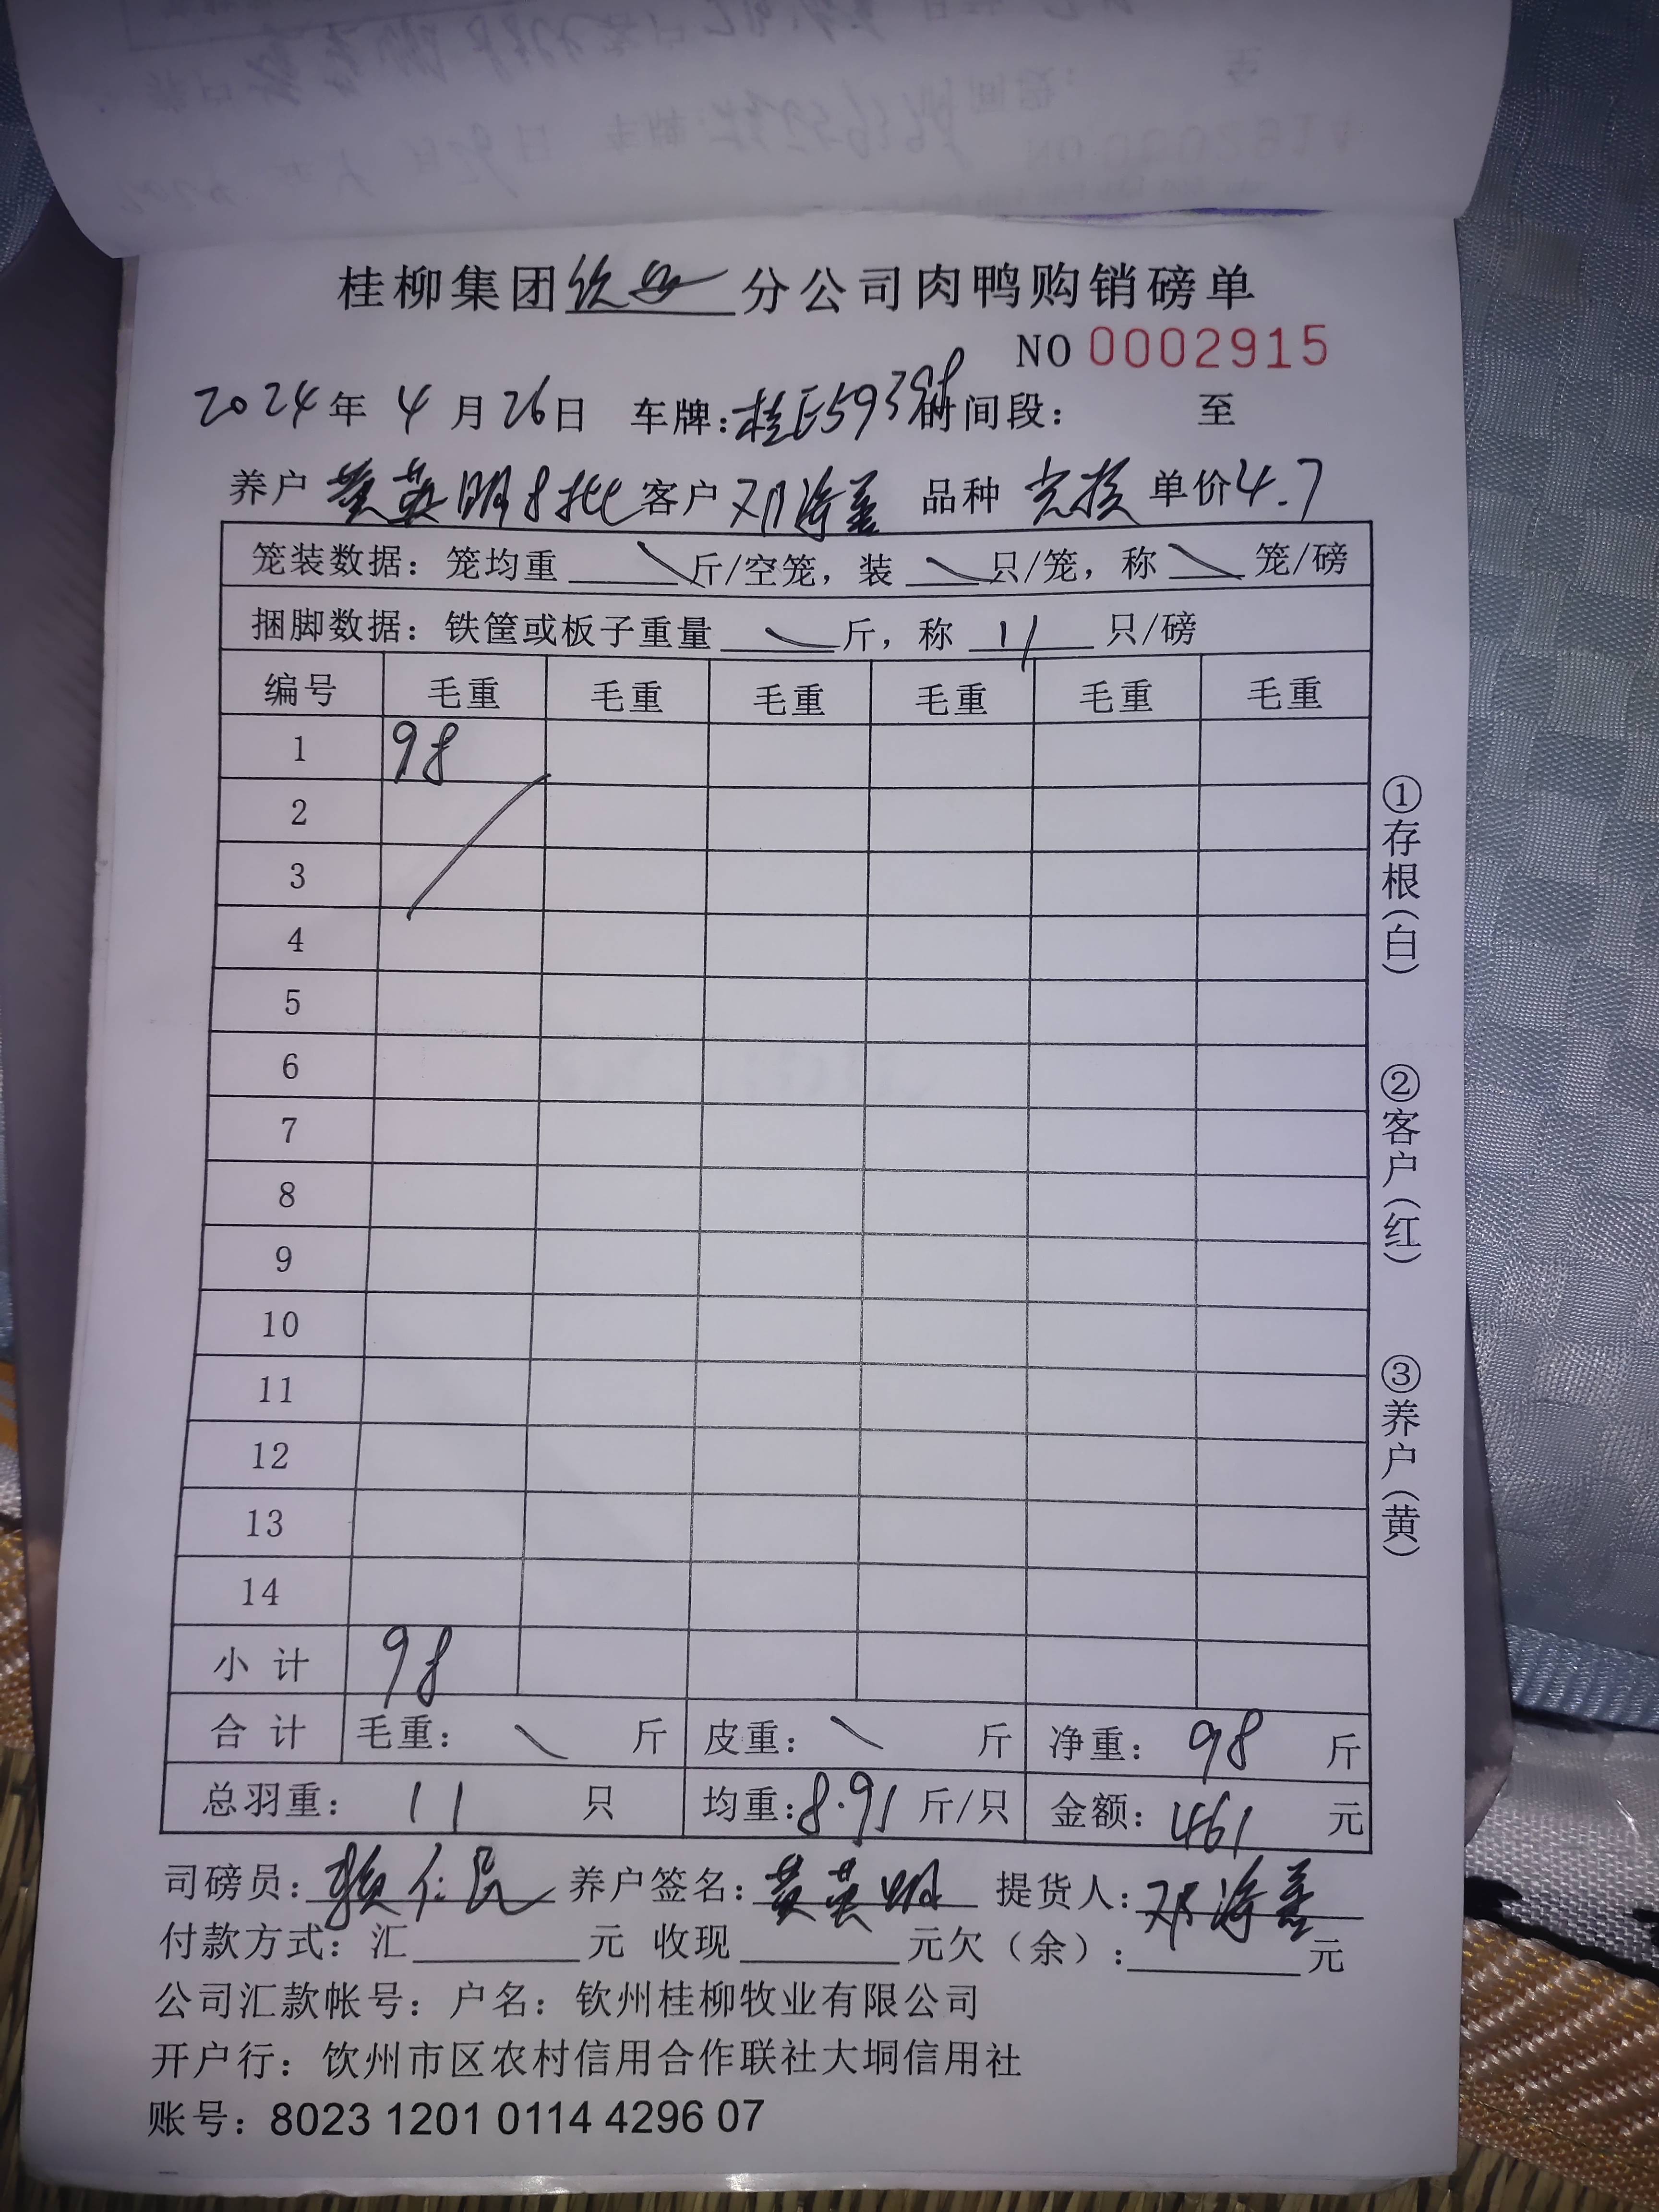 桂柳集团钦州分公司肉鸭购销磅单
NO 0002915
2024年4月26日 车牌:桂E5939 时间段: 至
养户 黄英明8批 客户 邓海 品种 单价4.7
笼装数据:笼均重 \ 斤/空笼,装 \ 只/笼,称 \ 笼/磅
捆脚数据:铁筐或板子重量 \ 斤,称 11 只/磅
编号 毛重 毛重 毛重 毛重 毛重 毛重
1 98
2
3
4
5
6
7
8
9
10
11
12
13
14
小计 98
合计 毛重: \ 斤 皮重: \ 斤 净重: 98 斤
总羽重: 11 只 均重:8.91斤/只 金额:461元
司磅员:赖仁民 养户签名:黄英明 提货人:邓海
付款方式:汇 元 收现 元欠(余): 元
公司汇款帐号:户名:钦州桂柳牧业有限公司
开户行:钦州市区农村信用合作联社大垌信用社
账号:8023 1201 0114 4296 07
①存根(白)
②客户(红)
③养户(黄)